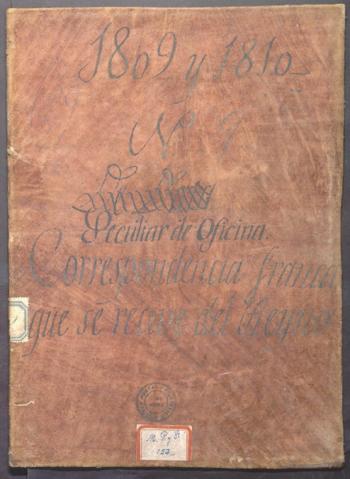 1809 y 1810
Nº
Peculiar de Oficina.
Correspondencia franca
que se recive del Reyno
152